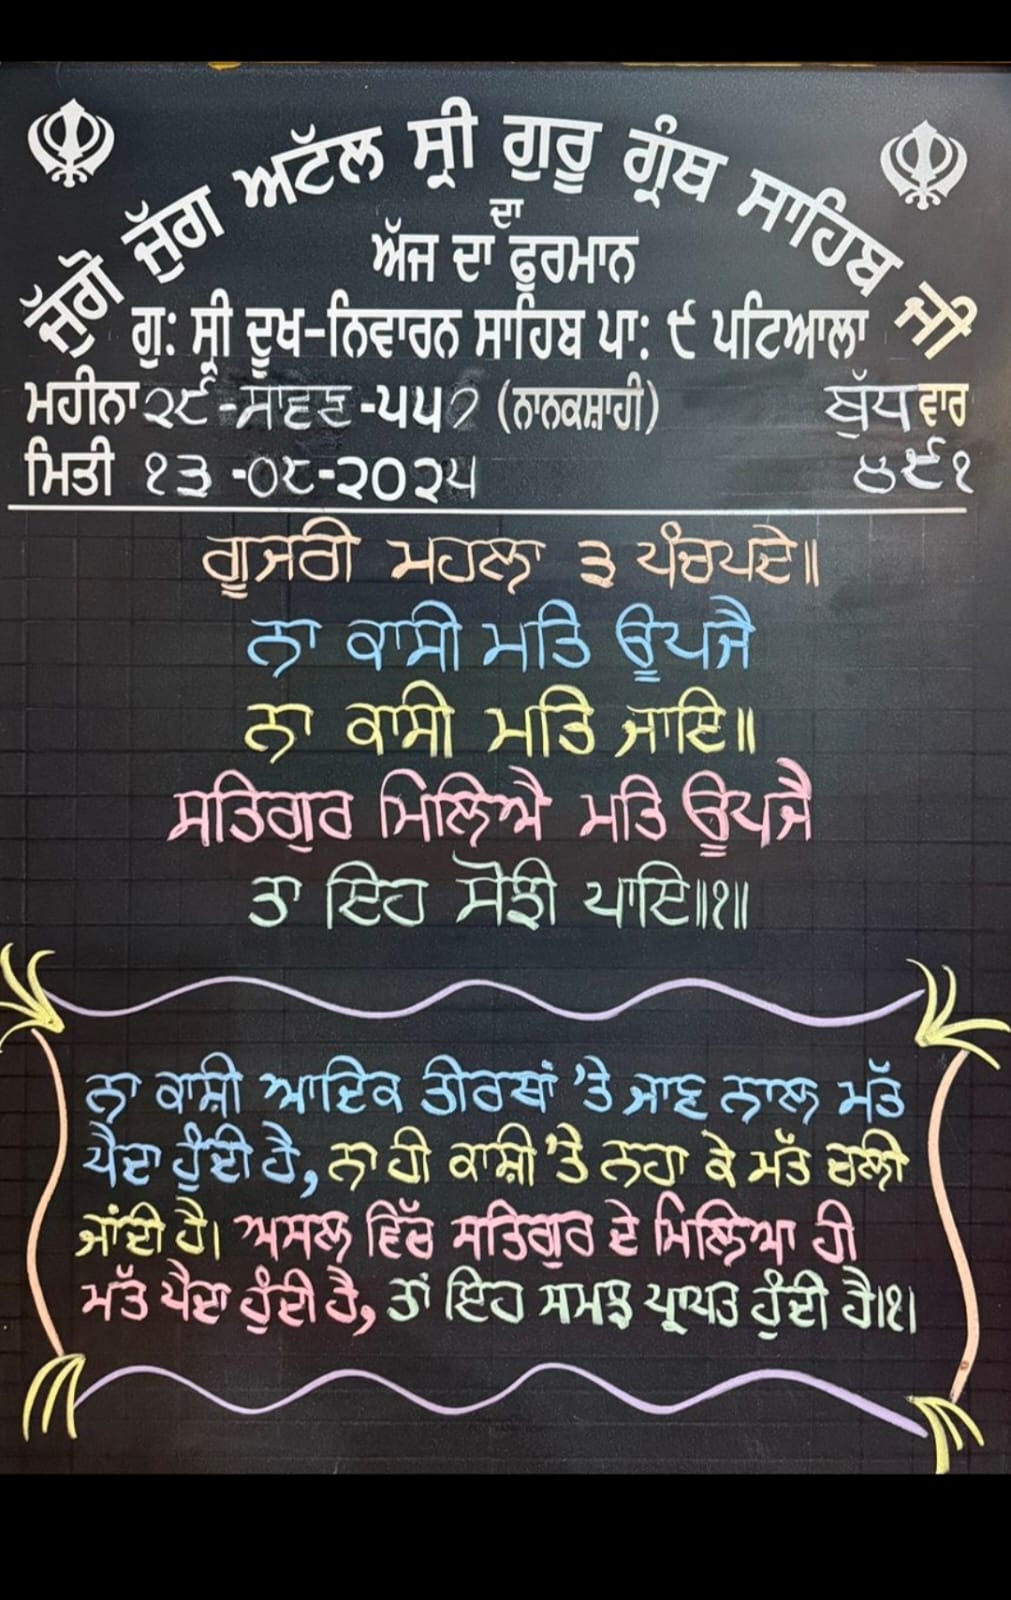 ਜੁੱਗੋ ਜੁੱਗ ਅਟੱਲ ਸ੍ਰੀ ਗੁਰੂ ਗ੍ਰੰਥ ਸਾਹਿਬ ਜੀ
ਦਾ
ਅੱਜ ਦਾ ਫੁਰਮਾਨ
ਗੁ: ਸ੍ਰੀ ਦੂਖ-ਨਿਵਾਰਨ ਸਾਹਿਬ ਪਾ: ੯ ਪਟਿਆਲਾ
ਮਹੀਨਾ ੨੯-ਸਾਵਣ-੫੫੭ (ਨਾਨਕਸ਼ਾਹੀ) ਬੁੱਧਵਾਰ
ਮਿਤੀ ੧੩-੦੮-੨੦੨੫ ੪੯੧
ਗੂਜਰੀ ਮਹਲਾ ੩ ਪੰਚਪਦੇ॥
ਨਾ ਕਾਸੀ ਮਤਿ ਊਪਜੈ
ਨਾ ਕਾਸੀ ਮਤਿ ਜਾਇ॥
ਸਤਿਗੁਰ ਮਿਲਿਐ ਮਤਿ ਊਪਜੈ
ਤਾ ਇਹ ਸੋਝੀ ਪਾਇ॥੧॥
ਨਾ ਕਾਸ਼ੀ ਆਦਿਕ ਤੀਰਥਾਂ 'ਤੇ ਜਾਣ ਨਾਲ ਮੱਤ
ਪੈਦਾ ਹੁੰਦੀ ਹੈ, ਨਾ ਹੀ ਕਾਸ਼ੀ 'ਤੇ ਨਹਾ ਕੇ ਮੱਤ ਚਲੀ
ਜਾਂਦੀ ਹੈ। ਅਸਲ ਵਿੱਚ ਸਤਿਗੁਰ ਦੇ ਮਿਲਿਆ ਹੀ
ਮੱਤ ਪੈਦਾ ਹੁੰਦੀ ਹੈ, ਤਾਂ ਇਹ ਸਮਝ ਪ੍ਰਾਪਤ ਹੁੰਦੀ ਹੈ।੧।